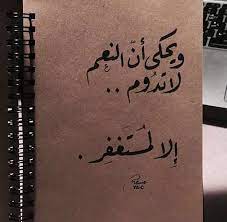 ويحكى أنّ النعم
لا تدوم ..
إلا لمُستَغفِر .